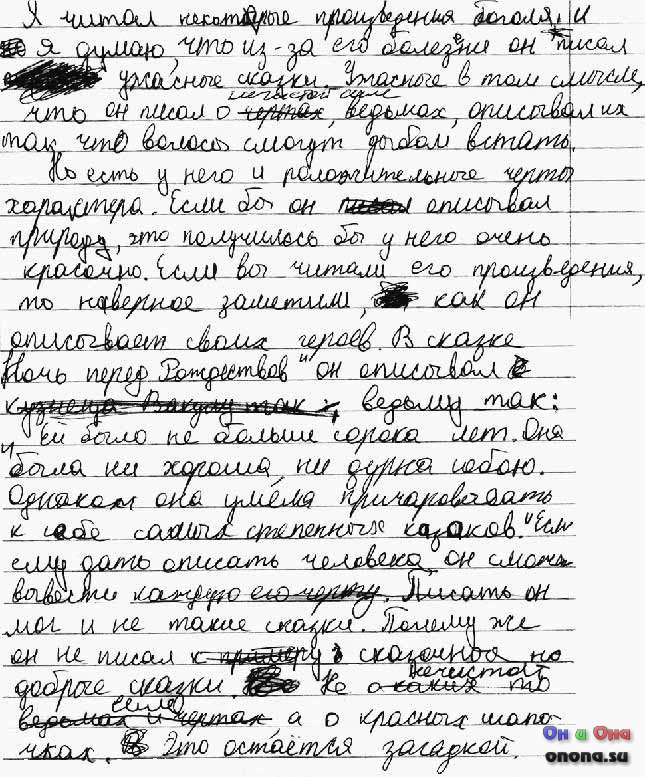 Я читал некоторые произведения Гоголя, и
я думаю, что из-за его болезне он писал
ужасные сказки. Ужасные в том смысле,
нечистой силе
что он писал о чертах, ведьмах, описывал их
так что волосы смогут дыбом встать.
Но есть у него и положительные черты
характера. Если бы он писал описывал
природу, это получилось бы у него очень
красочно. Если вы читали его произведения,
то наверное заметили, как он
описывает своих героев. В сказке
Ночь перед Рождеством" он описывал
кузнеца Вакулу так, ведьму так:
"Ей было не больше сорока лет. Она
была ни хороша, ни дурна собою.
Однако она умела причаровывать
к себе самых степенных казаков." Если
ему дать описать человека он сможет
вывести каждую его черту. Писать он
мог и не такие сказки. Почему же
он не писал к примеру сказочное но
нечистой
доброе сказки. Не о каких то
силе
ведьмах и чертах а о красных шапо-
чках. Это остаётся загадкой.
Он и Она
onona.su